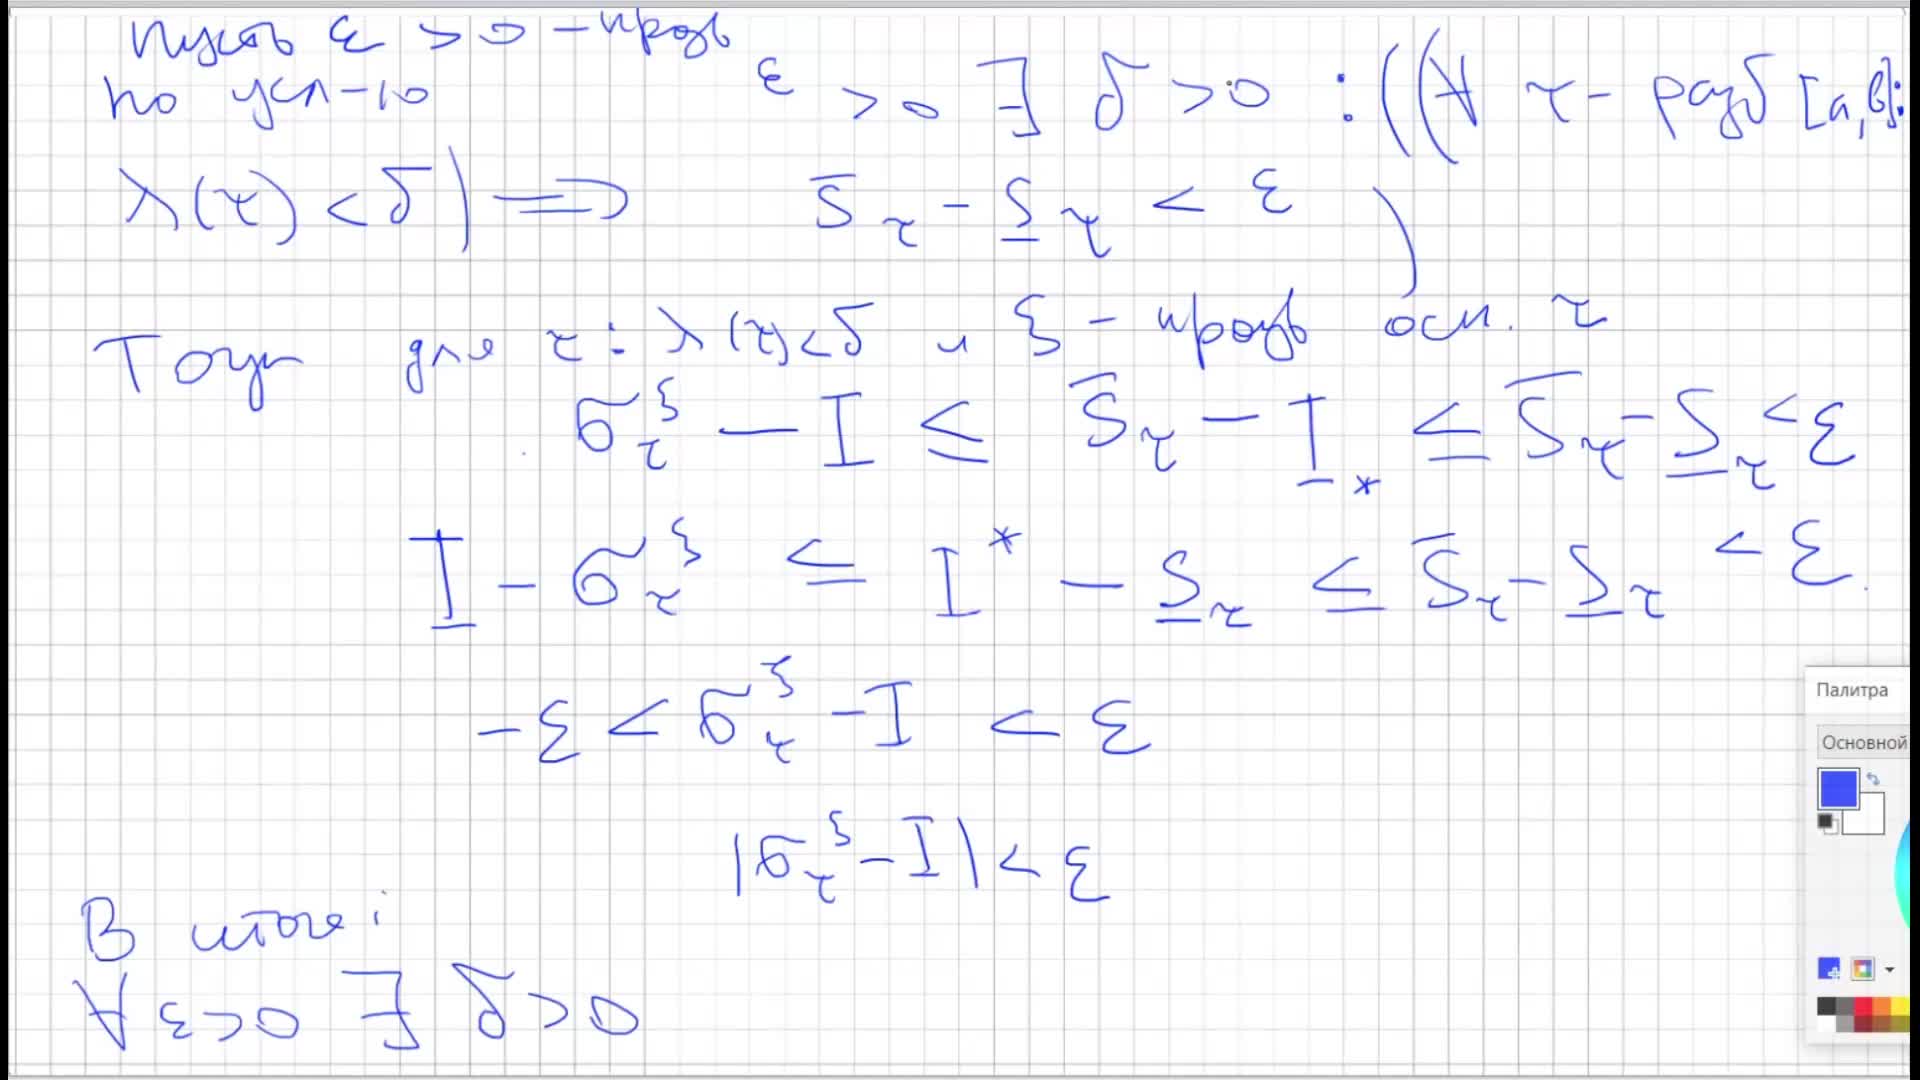 Пусть ε > 0 - произв
по усл-ю ε > 0 ∃ δ > 0 : ((∀ τ - разб [a,b]:
λ(τ) < δ) ⟹ S̅_τ - S̲_τ < ε )
Тогда для τ : λ(τ) < δ и ξ - произв осн. τ
σ_τ^ξ - I ≤ S̅_τ - I_* ≤ S̅_τ - S̲_τ < ε
I - σ_τ^ξ ≤ I^* - S̲_τ ≤ S̅_τ - S̲_τ < ε.
-ε < σ_τ^ξ - I < ε
|σ_τ^ξ - I| < ε
В итоге:
∀ ε > 0 ∃ δ > 0
Палитра
Основной